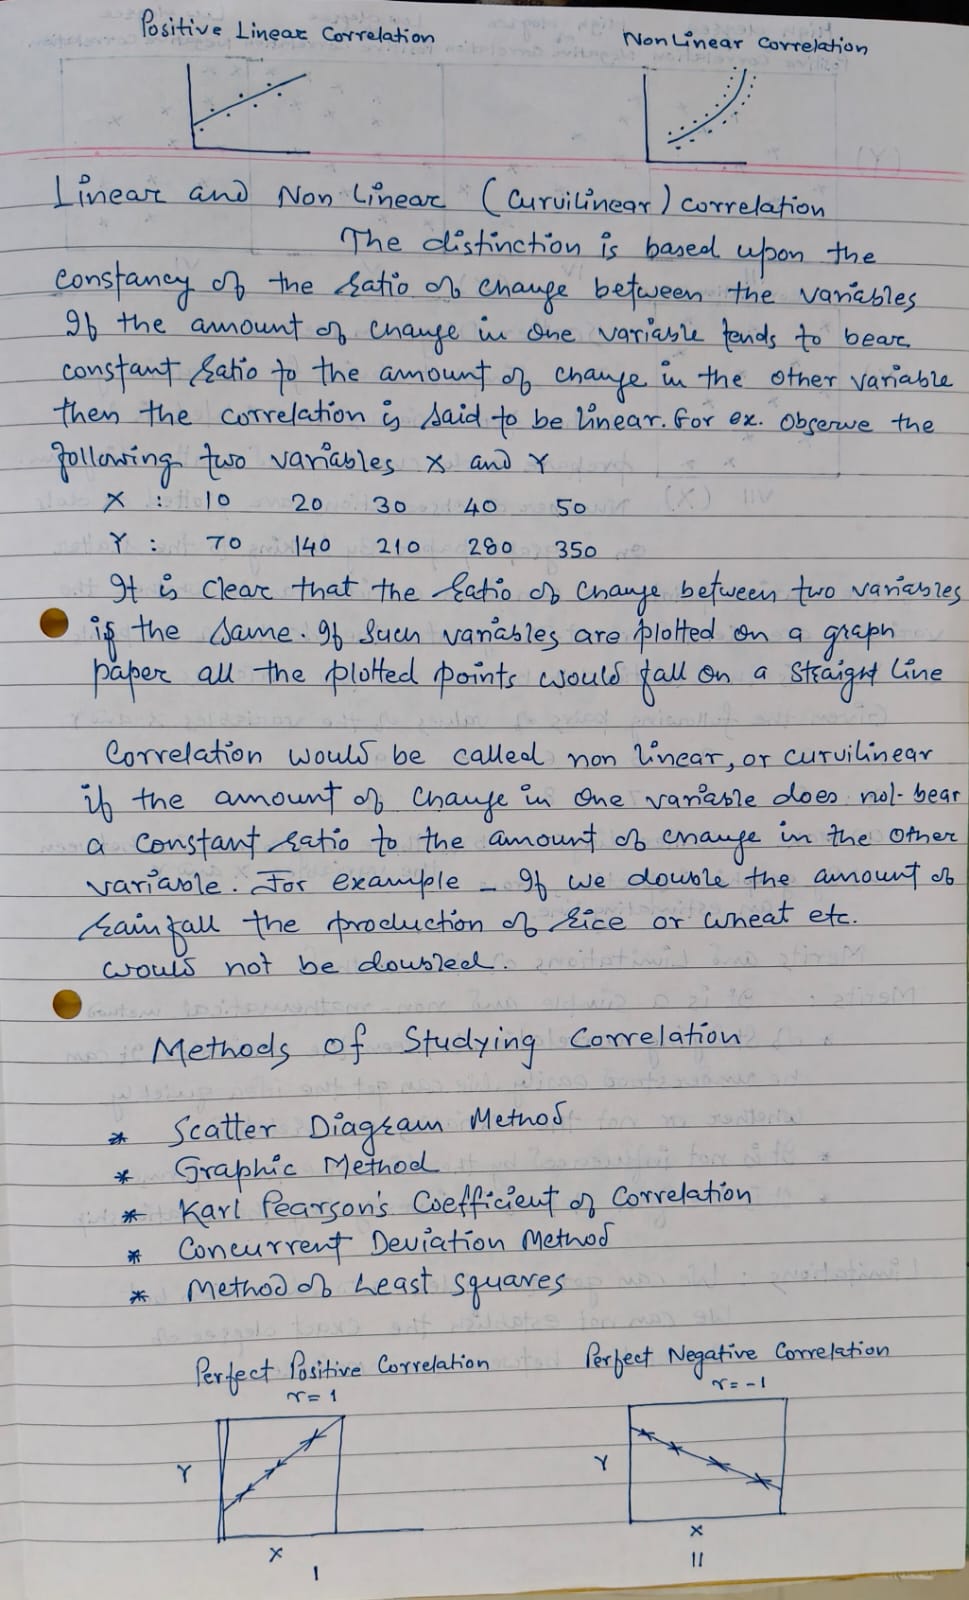 Positive Linear Correlation
Non Linear Correlation
Linear and Non Linear (Curvilinear) correlation
The distinction is based upon the
constancy of the ratio of change between the variables
If the amount of change in one variable tends to bear
constant ratio to the amount of change in the other variable
then the correlation is said to be linear. For ex. Observe the
following two variables X and Y
X : 10 20 30 40 50
Y : 70 140 210 280 350
It is clear that the ratio of change between two variables
is the same. If such variables are plotted on a graph
paper all the plotted points would fall on a straight line
Correlation would be called non linear, or curvilinear
if the amount of change in one variable does not bear
a constant ratio to the amount of change in the other
variable. For example - If we double the amount of
rainfall the production of rice or wheat etc.
would not be doubled.
Methods of Studying Correlation
* Scatter Diagram Method
* Graphic Method
* Karl Pearson's Coefficient of Correlation
* Concurrent Deviation Method
* Method of Least squares
Perfect Positive Correlation
r = 1
Y
X
I
Perfect Negative Correlation
r = -1
Y
X
II